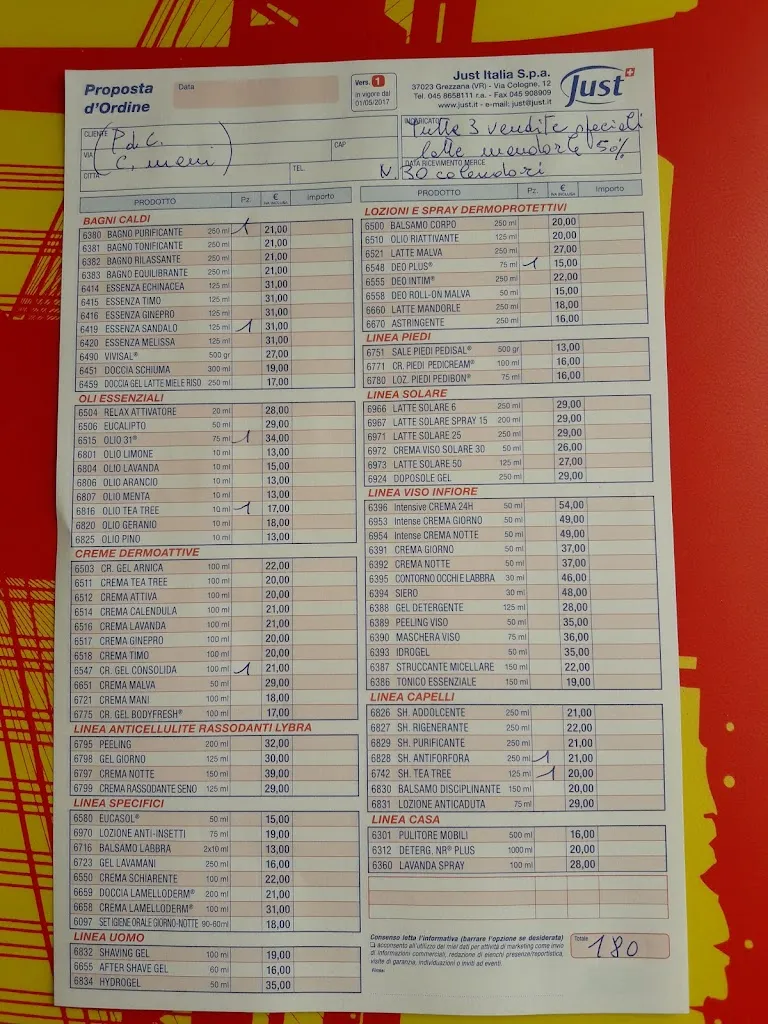 Proposta
d'Ordine
Data
Vers. 1
in vigore dal
01/05/2017
Just Italia S.p.a.
37023 Grezzana (VR) - Via Cologne, 12
Tel. 045 8658111 r.a. - Fax 045 908909
www.just.it - e-mail: just@just.it
Just
CLIENTE P. di C.
VIA C. mani
CAP
CITTÀ
TEL.
INCARICATO
Tutte 3 vendite speciali
latte mandorle 50%
DATA RICEVIMENTO MERCE
N. 30 calendari
PRODOTTO Pz. € IVA INCLUSA Importo
BAGNI CALDI
6380 BAGNO PURIFICANTE 250 ml 1 21,00
6381 BAGNO TONIFICANTE 250 ml 21,00
6382 BAGNO RILASSANTE 250 ml 21,00
6383 BAGNO EQUILIBRANTE 250 ml 21,00
6414 ESSENZA ECHINACEA 125 ml 31,00
6415 ESSENZA TIMO 125 ml 31,00
6416 ESSENZA GINEPRO 125 ml 31,00
6419 ESSENZA SANDALO 125 ml 1 31,00
6420 ESSENZA MELISSA 125 ml 31,00
6490 VIVISAL® 500 gr 27,00
6451 DOCCIA SCHIUMA 300 ml 19,00
6459 DOCCIA GEL LATTE MIELE RISO 250 ml 17,00
OLI ESSENZIALI
6504 RELAX ATTIVATORE 20 ml 28,00
6506 EUCALIPTO 50 ml 29,00
6515 OLIO 31® 75 ml 1 34,00
6801 OLIO LIMONE 10 ml 13,00
6804 OLIO LAVANDA 10 ml 15,00
6806 OLIO ARANCIO 10 ml 13,00
6807 OLIO MENTA 10 ml 13,00
6816 OLIO TEA TREE 10 ml 1 17,00
6820 OLIO GERANIO 10 ml 18,00
6825 OLIO PINO 10 ml 13,00
CREME DERMOATTIVE
6503 CR. GEL ARNICA 100 ml 22,00
6511 CREMA TEA TREE 100 ml 20,00
6512 CREMA ATTIVA 100 ml 20,00
6514 CREMA CALENDULA 100 ml 21,00
6516 CREMA LAVANDA 100 ml 21,00
6517 CREMA GINEPRO 100 ml 20,00
6518 CREMA TIMO 100 ml 20,00
6547 CR. GEL CONSOLIDA 100 ml 1 21,00
6651 CREMA MALVA 50 ml 29,00
6721 CREMA MANI 100 ml 18,00
6775 CR. GEL BODYFRESH® 100 ml 17,00
LINEA ANTICELLULITE RASSODANTI LYBRA
6795 PEELING 200 ml 32,00
6798 GEL GIORNO 125 ml 30,00
6797 CREMA NOTTE 150 ml 39,00
6799 CREMA RASSODANTE SENO 125 ml 29,00
LINEA SPECIFICI
6580 EUCASOL® 50 ml 15,00
6970 LOZIONE ANTI-INSETTI 75 ml 19,00
6716 BALSAMO LABBRA 2x10 ml 13,00
6723 GEL LAVAMANI 250 ml 16,00
6550 CREMA SCHIARENTE 100 ml 22,00
6659 DOCCIA LAMELLODERM® 200 ml 21,00
6658 CREMA LAMELLODERM® 100 ml 31,00
6097 SET IGIENE ORALE GIORNO-NOTTE 90-60ml 18,00
LINEA UOMO
6832 SHAVING GEL 100 ml 19,00
6655 AFTER SHAVE GEL 60 ml 16,00
6834 HYDROGEL 50 ml 35,00
PRODOTTO Pz. € IVA INCLUSA Importo
LOZIONI E SPRAY DERMOPROTETTIVI
6500 BALSAMO CORPO 250 ml 20,00
6510 OLIO RIATTIVANTE 125 ml 20,00
6521 LATTE MALVA 250 ml 27,00
6548 DEO PLUS® 75 ml 1 15,00
6555 DEO INTIM® 250 ml 22,00
6558 DEO ROLL-ON MALVA 50 ml 15,00
6660 LATTE MANDORLE 250 ml 18,00
6670 ASTRINGENTE 250 ml 16,00
LINEA PIEDI
6751 SALE PIEDI PEDISAL® 500 gr 13,00
6771 CR. PIEDI PEDICREAM® 100 ml 16,00
6780 LOZ. PIEDI PEDIBON® 75 ml 16,00
LINEA SOLARE
6966 LATTE SOLARE 6 250 ml 29,00
6967 LATTE SOLARE SPRAY 15 200 ml 29,00
6971 LATTE SOLARE 25 250 ml 29,00
6972 CREMA VISO SOLARE 30 50 ml 26,00
6973 LATTE SOLARE 50 125 ml 27,00
6924 DOPOSOLE GEL 250 ml 29,00
LINEA VISO INFIORE
6396 Intensive CREMA 24H 50 ml 54,00
6953 Intense CREMA GIORNO 50 ml 49,00
6954 Intense CREMA NOTTE 50 ml 49,00
6391 CREMA GIORNO 50 ml 37,00
6392 CREMA NOTTE 50 ml 37,00
6395 CONTORNO OCCHI E LABBRA 30 ml 46,00
6394 SIERO 30 ml 48,00
6388 GEL DETERGENTE 125 ml 28,00
6389 PEELING VISO 50 ml 35,00
6390 MASCHERA VISO 75 ml 36,00
6393 IDROGEL 50 ml 35,00
6387 STRUCCANTE MICELLARE 150 ml 22,00
6386 TONICO ESSENZIALE 150 ml 19,00
LINEA CAPELLI
6826 SH. ADDOLCENTE 250 ml 21,00
6827 SH. RIGENERANTE 250 ml 22,00
6829 SH. PURIFICANTE 250 ml 21,00
6828 SH. ANTIFORFORA 250 ml 1 21,00
6742 SH. TEA TREE 125 ml 1 20,00
6830 BALSAMO DISCIPLINANTE 150 ml 20,00
6831 LOZIONE ANTICADUTA 75 ml 29,00
LINEA CASA
6301 PULITORE MOBILI 500 ml 16,00
6312 DETERG. NR® PLUS 1000 ml 20,00
6360 LAVANDA SPRAY 100 ml 28,00
Consenso letta l'informativa (barrare l'opzione se desiderata)
acconsento all'utilizzo dei miei dati per attività di marketing come invio
di informazioni commerciali, redazione di elenchi presenze/reportistica,
visite di garanzia, individuazioni o inviti ad eventi.
Firma:
Totale
180